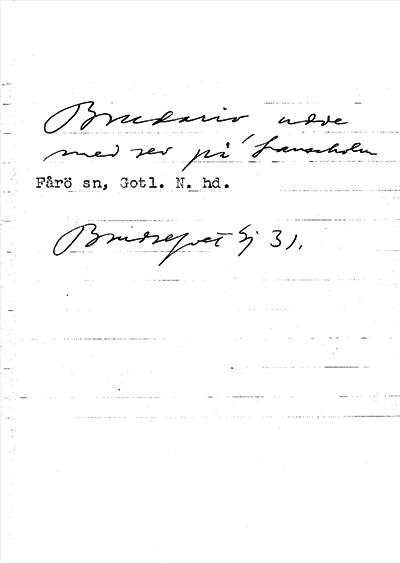 Brudariv, udde
med rev på Lauseholm
Fårö sn, Gotl. N. hd.
Brudrefvet Sj 31.